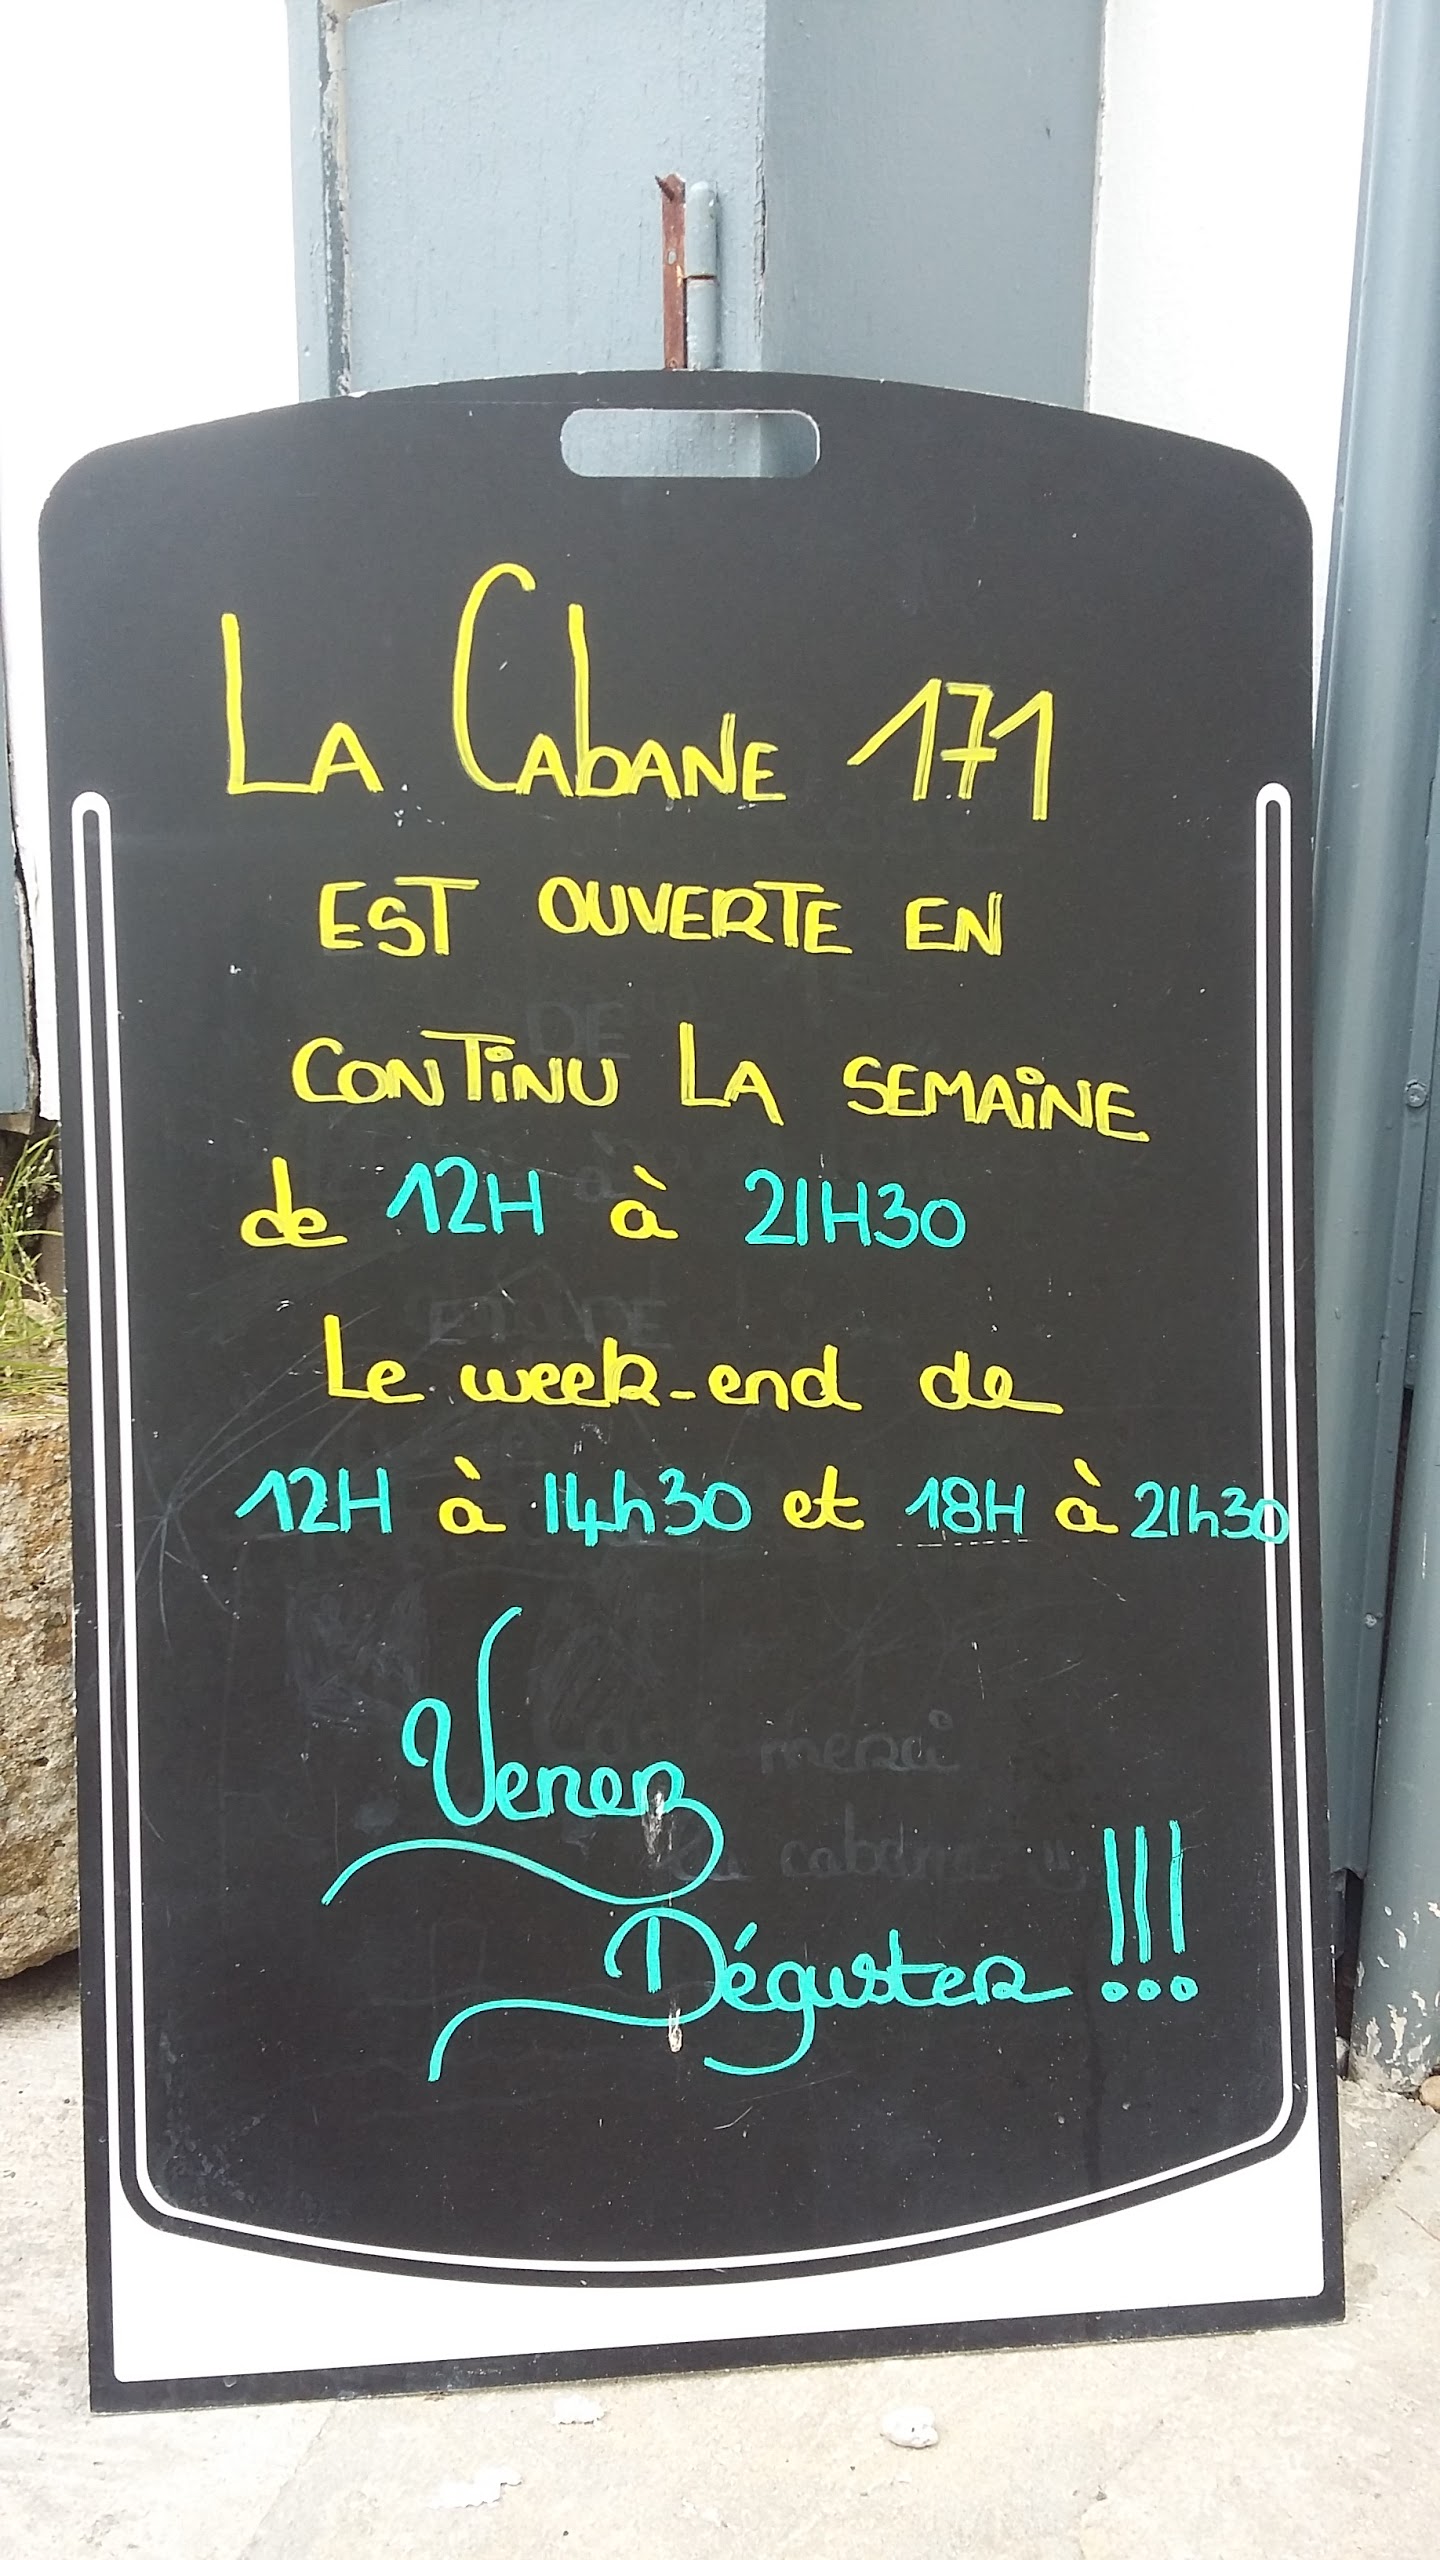 LA CABANE 171
EST OUVERTE EN
CONTINU LA SEMAINE
de 12H à 21H30
Le week-end de
12H à 14h30 et 18H à 21h30
Venez
Déguster !!!